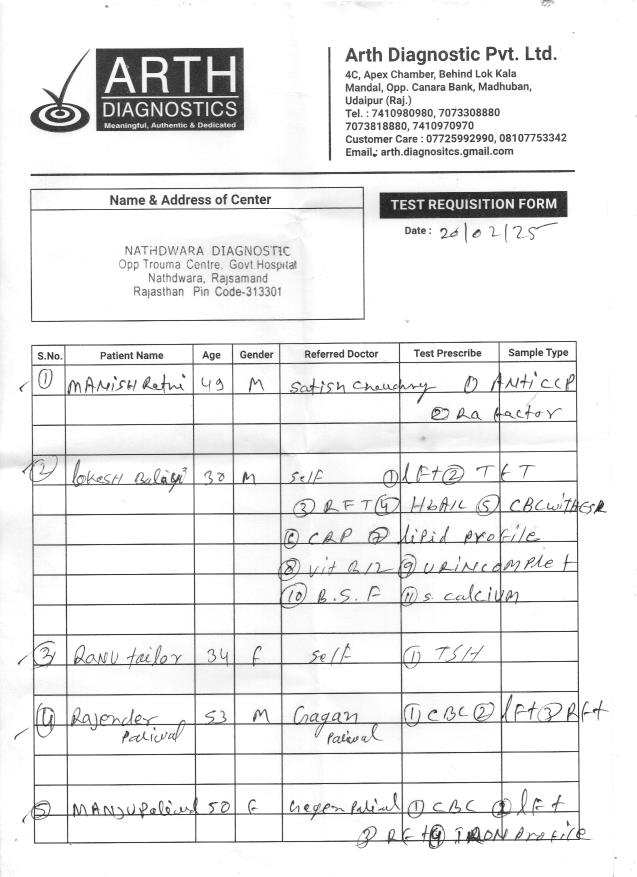 ARTH
DIAGNOSTICS
Meaningful, Authentic & Dedicated
Arth Diagnostic Pvt. Ltd.
4C, Apex Chamber, Behind Lok Kala
Mandal, Opp. Canara Bank, Madhuban,
Udaipur (Raj.)
Tel. : 7410980980, 7073308880
7073818880, 7410970970
Customer Care : 07725992990, 08107753342
Email.: arth.diagnositcs.gmail.com
Name & Address of Center
NATHDWARA DIAGNOSTIC
Opp Trouma Centre, Govt.Hospital
Nathdwara, Rajsamand
Rajasthan Pin Code-313301
TEST REQUISITION FORM
Date : 20/02/25
S.No. Patient Name Age Gender Referred Doctor Test Prescribe Sample Type
1 MANISH Rathi 49 M Satish Choudhry 1 ANTi CCP
2 Ra factor
2 LOKESH 30 M Self 1 lFt 2 TFT
3 RFT 4 HbA1C 5 CBC with ESR
6 CRP 7 lipid profile
8 vit B12 9 URIN COMPLEt
10 B.S.F 11 s. calcium
3 RANU tailor 34 F Self 1 TSH
4 Rajender 53 M Gagan 1 CBC 2 lFt 3 RFt
Paliwal Paliwal
5 MANJU Paliwal 50 F Gagan Paliwal 1 CBC 2 lFt
3 RFt 4 IRON Profile